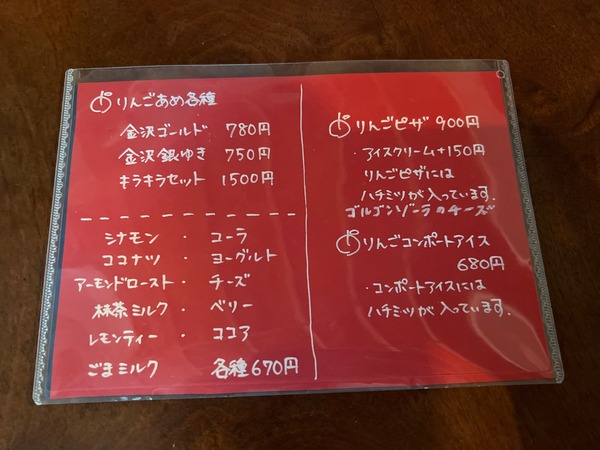 りんごあめ各種
金沢ゴールド 780円
金沢銀ゆき 750円
キラキラセット 1500円
シナモン ・ コーラ
ココナツ ・ ヨーグルト
アーモンドロースト ・ チーズ
抹茶ミルク ・ ベリー
レモンティー ・ ココア
ごまミルク 各種670円
りんごピザ 900円
・アイスクリーム+150円
りんごピザには
ハチミツが入っています.
ゴルゴンゾーラのチーズ
りんごコンポートアイス
680円
・コンポートアイスには
ハチミツが入っています.